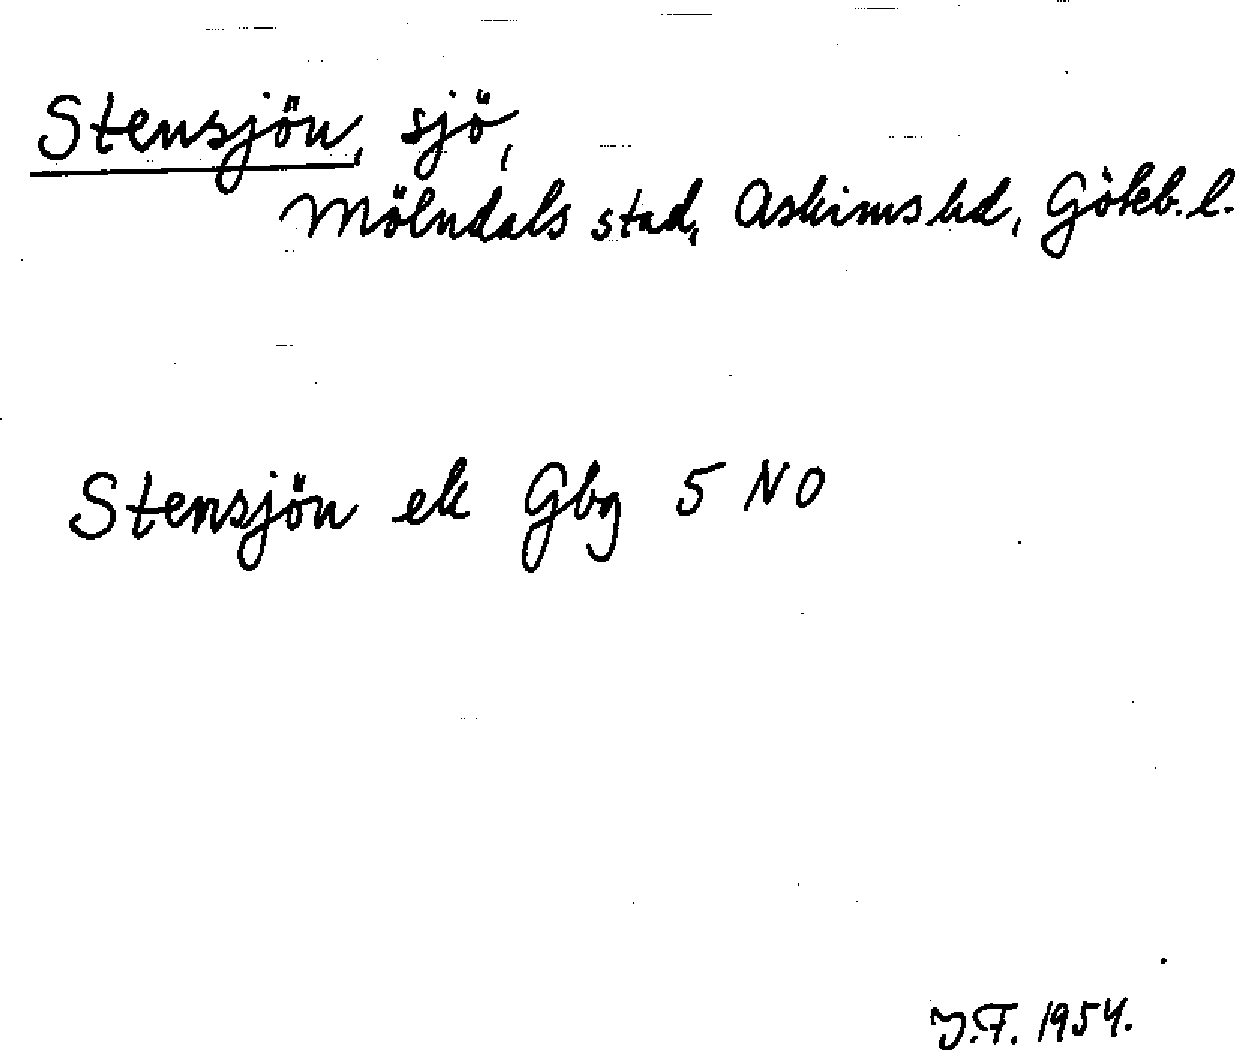 Stensjön, sjö,
Mölndals stad, Askims hd, Göteb. l.
Stensjön ek Gbg 5 NO
J.F. 1954.